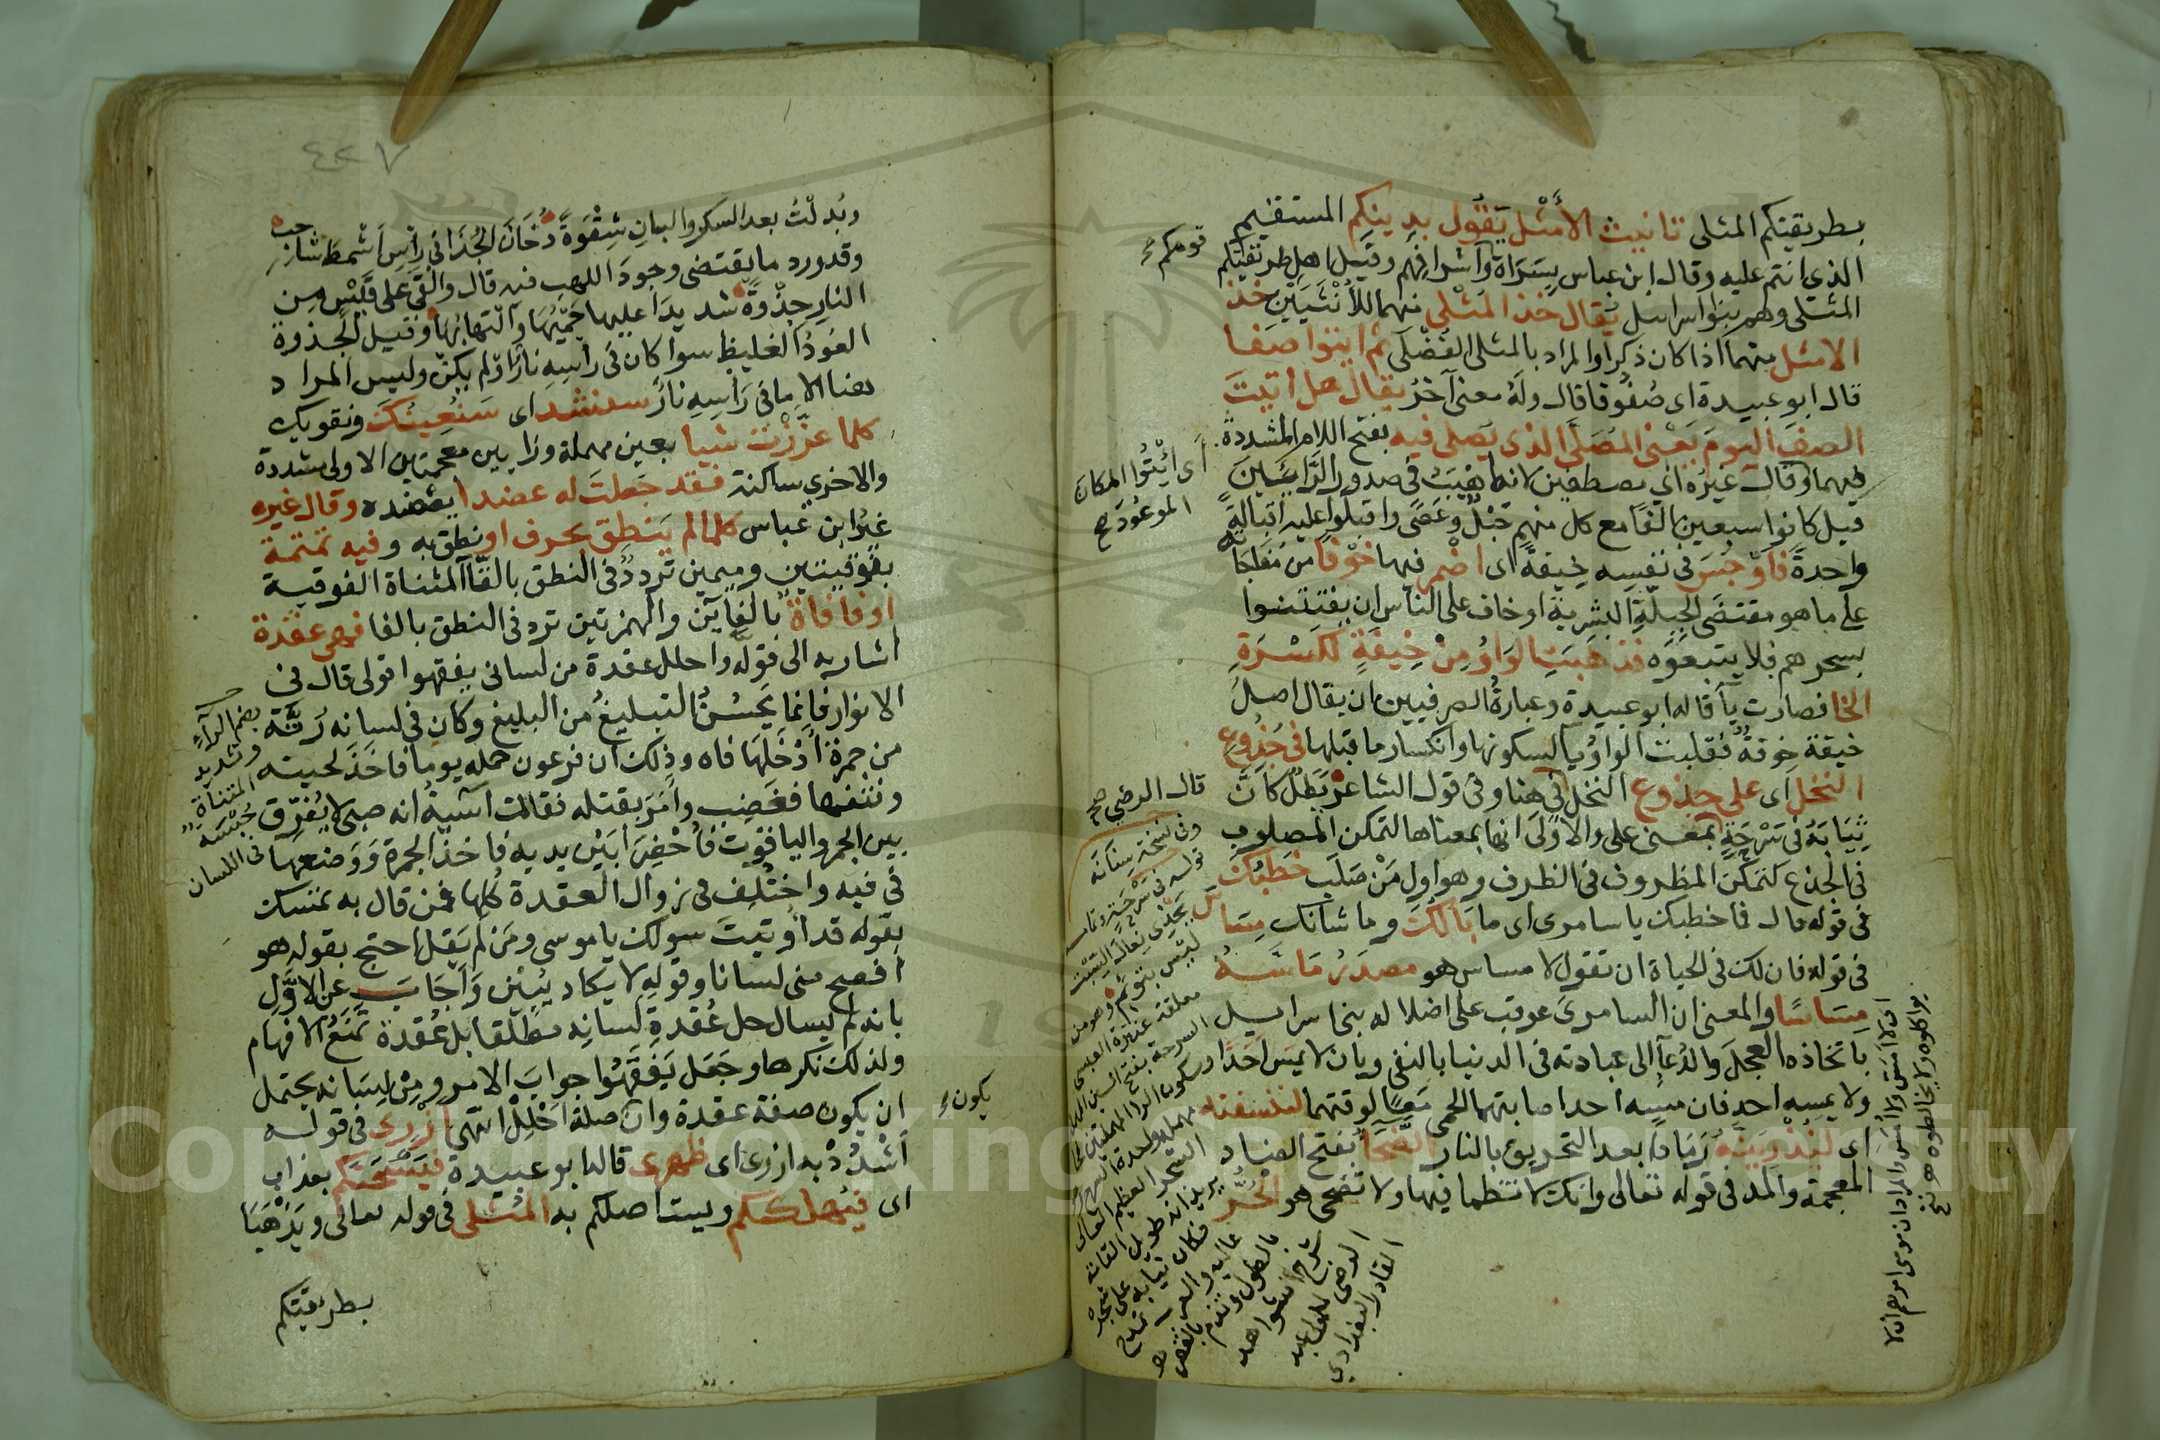 بطريقتكم المثلى تانيث الأمثل يقول بدينكم المستقيم
الذي انتم عليه وقال ابن عباس بسراة واشرافهم وقيل اهل طريقتكم
قومكم
المثلى وهم بنوا اسرايل يقال خذ المثلى منهما للأنثيين خذ
الامثل منهما اذا كان ذكرا والمراد بالمثلى الفضلى ثم ايتوا صفا
قال ابو عبيدة اى صفوفا قال وله معنى آخر يقال هل اتيت
الصف اليوم يعنى المصلى الذى يصلى فيه بفتح اللام المشددة
اى ائتوا المكان
الموعود صح
فيهما وقال غيره اي مصطفين لانه اهيب فى صدور الرائين
قيل كانوا سبعين الفا مع كل منهم حبل وعصى واقبلوا عليه اقبالة
واحدة فاوجس فى نفسه خيفة اى اضمر فيها خوفا من مفاجاته
على ما هو مقتضى الجبلة البشرية او خاف على الناس ان يفتتنوا
بسحرهم فلا يتبعوه فذهبت الواو من خيفة لكسرة
الخا فصارت يأ قاله ابو عبيدة وعبارة الصرفيين ان يقال اصل
خيفة خوفة فقلبت الواو يا لسكونها وانكسار ما قبلها فى جذوع
النخل اى على جذوع النخل فى هنا وفى قول الشاعر بطل كأن
قال الرضي صح
ثيابه فى سرحة بمعنى على والاولى انها بمعناها لتمكن المصلوب
وفى نسخة بنانه
فى الجذع كتمكن المظروف فى الظرف وهو اول من صلب خطبك
فى قوله قال فما خطبك يا سامرى اى ما بالك وما شانك مساس
فى قوله فان لك فى الحياة ان تقول لا مساس هو مصدر ماسه
مساسا والمعنى ان السامرى عوقب على اضلاله بنى اسراييل
باتخاذه العجل والدعآ الى عبادته فى الدنيا بالنفى وبان لا يمس احدا
ولا يمسه احد فان مسه احد اصابتهما الحمى معا لوقتهما لننسفنه
اى لنذرينه رمادا بعد التحريق بالنار الضحا بفتح الضاد
المعجمة والمد فى قوله تعالى وانك لا تظما فيها ولا تضحى هو الحر
يحذى نعال السبت
ليس بتوأم
معلقة عنترة العبسى
السرحة بفتح السين
وسكون الرا المهملتين
الشجر العظيم العالى
يريد انه طويل القامة
فكان ثيابه على شجرة
عالية والعرب تمدح
بالطول وتذم بالقصر
شرح شواهد
الرضى للعلامة عبد
القادر البغدادي
وبدلت بعد السكر والبان شقوة دخان الجذا فى رأس اشمط شاحب
وقد ورد ما يقتضى وجود اللهب فيه قال والقى على قبس من
النار جذوة شديدا عليها حميها والتهابها وقيل الجذوة
العود الغليظ سوا كان فى راسه نار او لم يكن وليس المراد
هنا الا ما فى راسه نار سنشد اى سنعينك ونقويك
كلما عززت شيا بعين مهملة وزايين معجمتين الاولى مشددة
والاخرى ساكنة فقد جعلت له عضدا يعضده وقال غيره
غير ابن عباس كلما لم ينطق بحرف او نطق به وفيه تمتمة
بفوقيتين وميمين تردد فى النطق بالتآ المثناة الفوقية
او فافاة بالفآين والهمزتين ترد فى النطق بالفا فهى عقدة
اشار به الى قوله واحلل عقدة من لسانى يفقهوا قولى قال فى
الانوار فانما يحسن التبليغ من البليغ وكان فى لسانه رتة
بضم الرآء
وتشديد
المثناة
حبسة
فى اللسان
من جمرة ادخلها فاه وذلك ان فرعون حمله يوما فاخذ لحيته
ونتفها فغضب وامر بقتله فقالت آسية انه صبى لا يفرق
بين الجمر والياقوت فاحضرا بين يديه فاخذ الجمرة ووضعها
فى فيه واختلف فى زوال العقدة كلها فمن قال به تمسك
بقوله قد اوتيت سولك يا موسى ومن لم يقل احتج بقوله هو
افصح منى لسانا وقوله لا يكاد يبين واجاب عن الاول
بانه لم يسال حل عقدة لسانه مطلقا بل عقدة تمنع الافهام
ولذلك نكرها وجعل يفقهوا جواب الامر ومن لسانه يحتمل
يكون
ان يكون صفة عقدة وان صلة احلل انتهى أزرى فى قوله
اشدد به ازرى اى ظهرى قاله ابو عبيدة فيسحتكم بعذاب
اى فيهلككم ويستاصلكم به المثلى فى قوله تعالى ويذهبا
بطريقتكم
٤٢٧